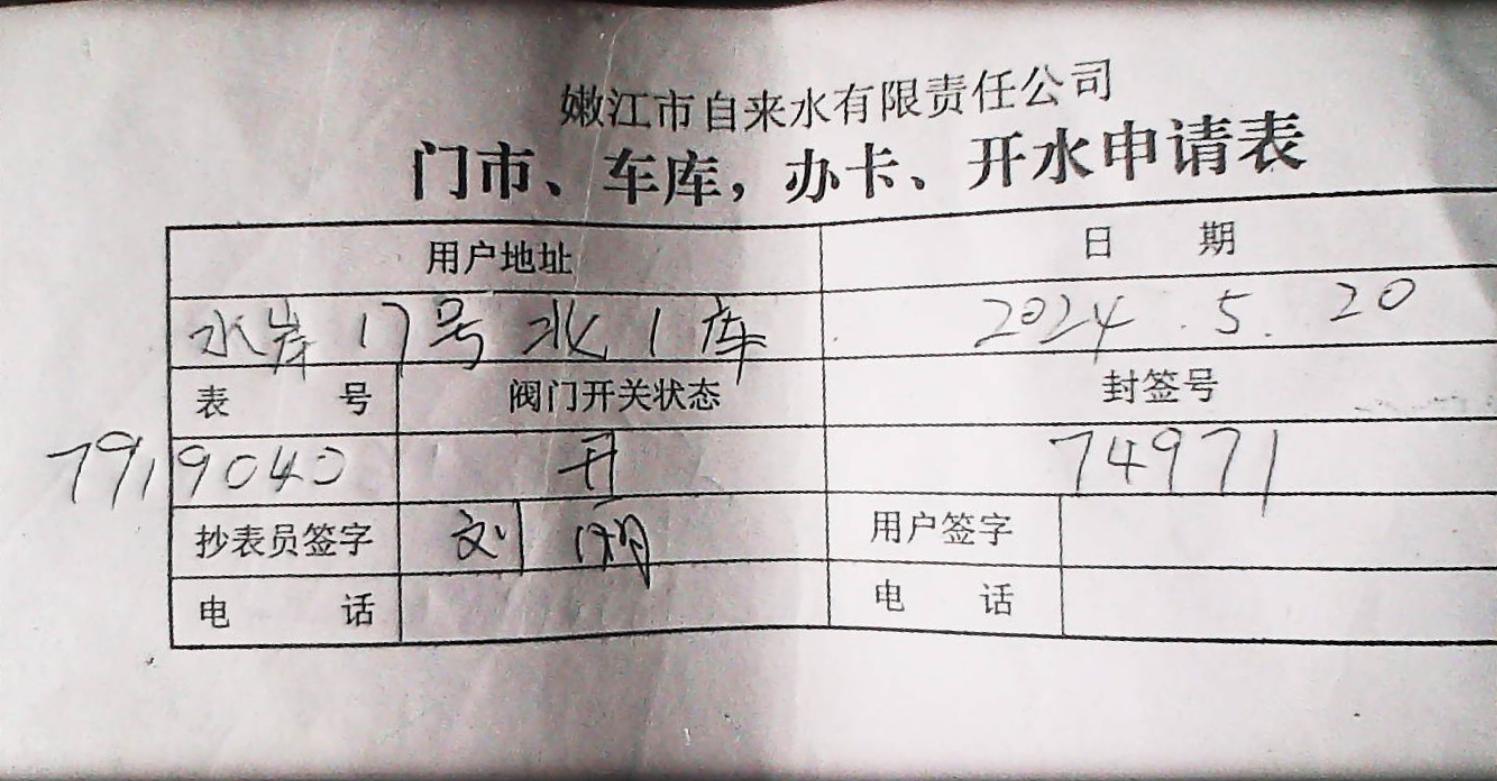 嫩江市自来水有限责任公司
门市、车库，办卡、开水申请表
用户地址 日 期
水岸17号北1库 2024.5.20
表 号 阀门开关状态 封签号
7919040 开 74971
抄表员签字 刘 用户签字
电 话 电 话